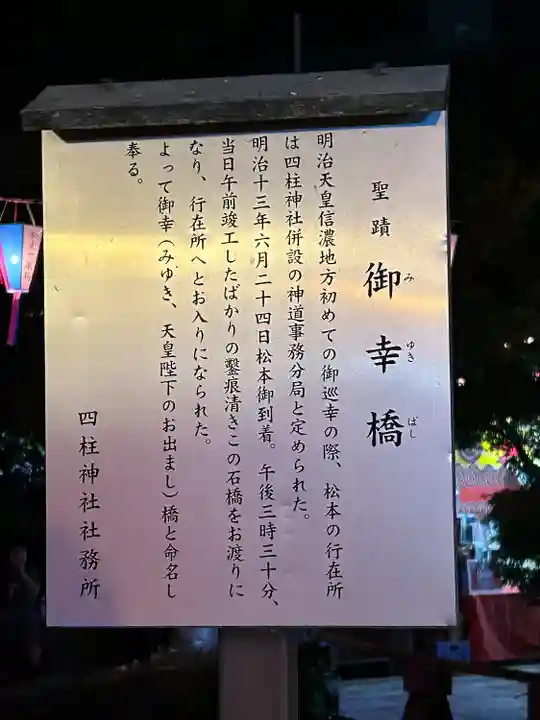 聖蹟 御幸橋
み ゆき ばし
明治天皇信濃地方初めての御巡幸の際、松本の行在所
は四柱神社併設の神道事務分局と定められた。
明治十三年六月二十四日松本御到着。午後三時三十分、
当日午前竣工したばかりの鑿痕清きこの石橋をお渡りに
なり、行在所へとお入りになられた。
よって御幸（みゆき、天皇陛下のお出まし）橋と命名し
奉る。
四柱神社社務所